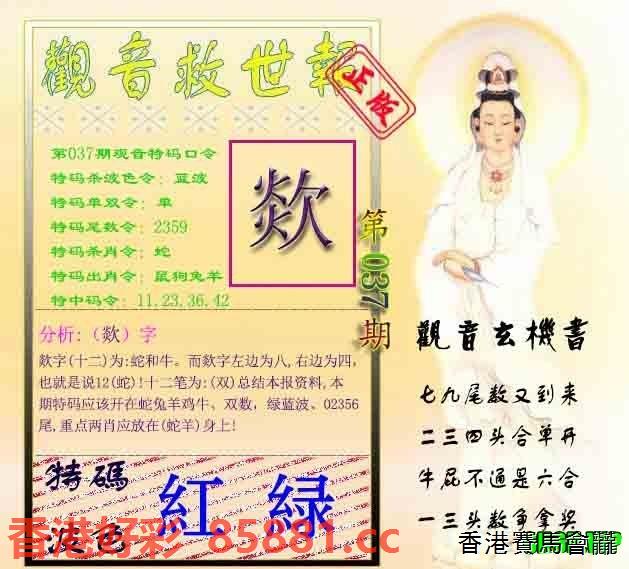 觀音救世報
正版
第037期观音特码口令
特码杀波色令：蓝波
特码单双令：单
特码尾数令：2359
特码杀肖令：蛇
特码出肖令：鼠狗兔羊
特中码令：11.23.36.42
欻
第037期
分析:（欻）字
欻字(十二)为:蛇和牛。而欻字左边为八,右边为四,
也就是说12(蛇)!十二笔为:(双)总结本报资料,本
期特码应该开在蛇兔羊鸡牛、双数，绿蓝波、02356
尾,重点两肖应放在(蛇羊)身上!
觀音玄機書
七九尾数又到来
二三四头合单开
牛屁不通是六合
一三头数争拿奖
特碼
波色
紅 綠
香港好彩 85881.cc
香港賽馬會